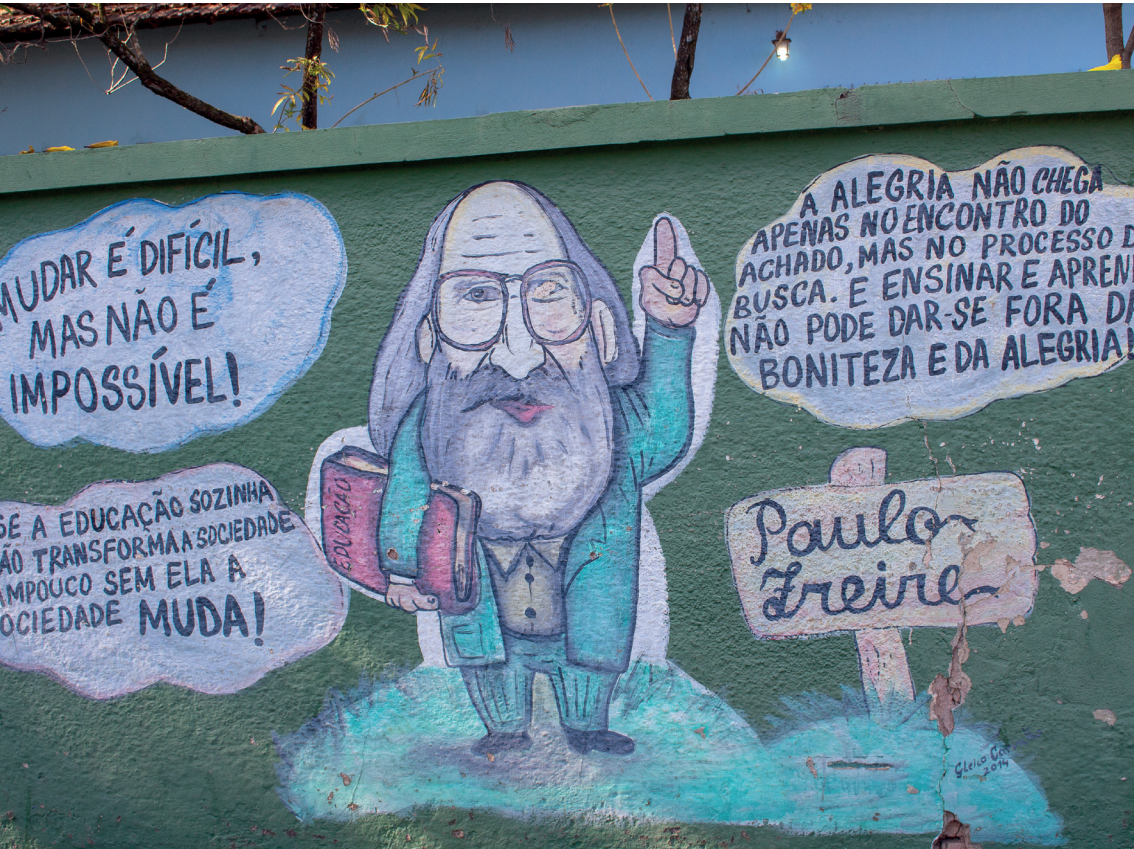 MUDAR É DIFÍCIL,
MAS NÃO É
IMPOSSÍVEL!
SE A EDUCAÇÃO SOZINHA
ÃO TRANSFORMA A SOCIEDADE
AMPOUCO SEM ELA A
OCIEDADE MUDA!
EDUCAÇÃO
A ALEGRIA NÃO CHEGA
APENAS NO ENCONTRO DO
ACHADO, MAS NO PROCESSO D
BUSCA. E ENSINAR E APREN
NÃO PODE DAR-SE FORA DA
BONITEZA E DA ALEGRIA!
Paulo
Freire
2014